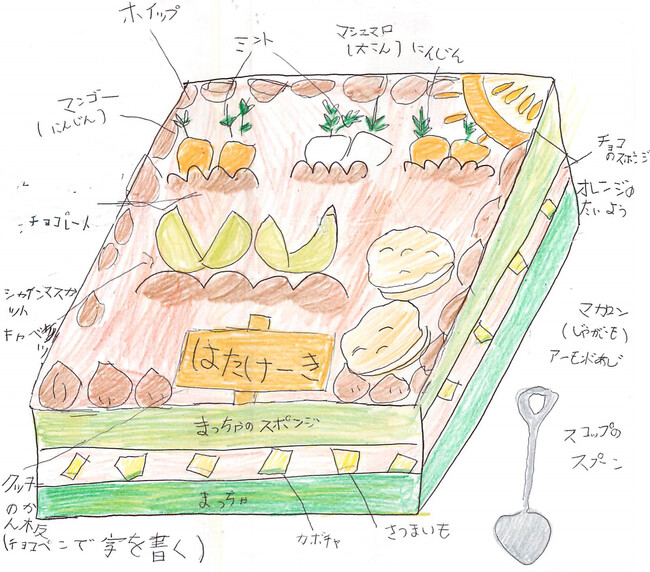 ホイップ
ミント
マシュマロ
(大こん)
にんじん
マンゴー
(にんじん)
チョコ
のスポンジ
オレンジの
たいよう
チョコレート
シャインマスカ
ット
キャベツ
マカロン
(じゃがいも)
アーモンドあじ
はたけーき
まっちゃのスポンジ
スコップの
スプーン
クッキー
のかん板
(チョコペンで字を書く)
まっちゃ
カボチャ
さつまいも